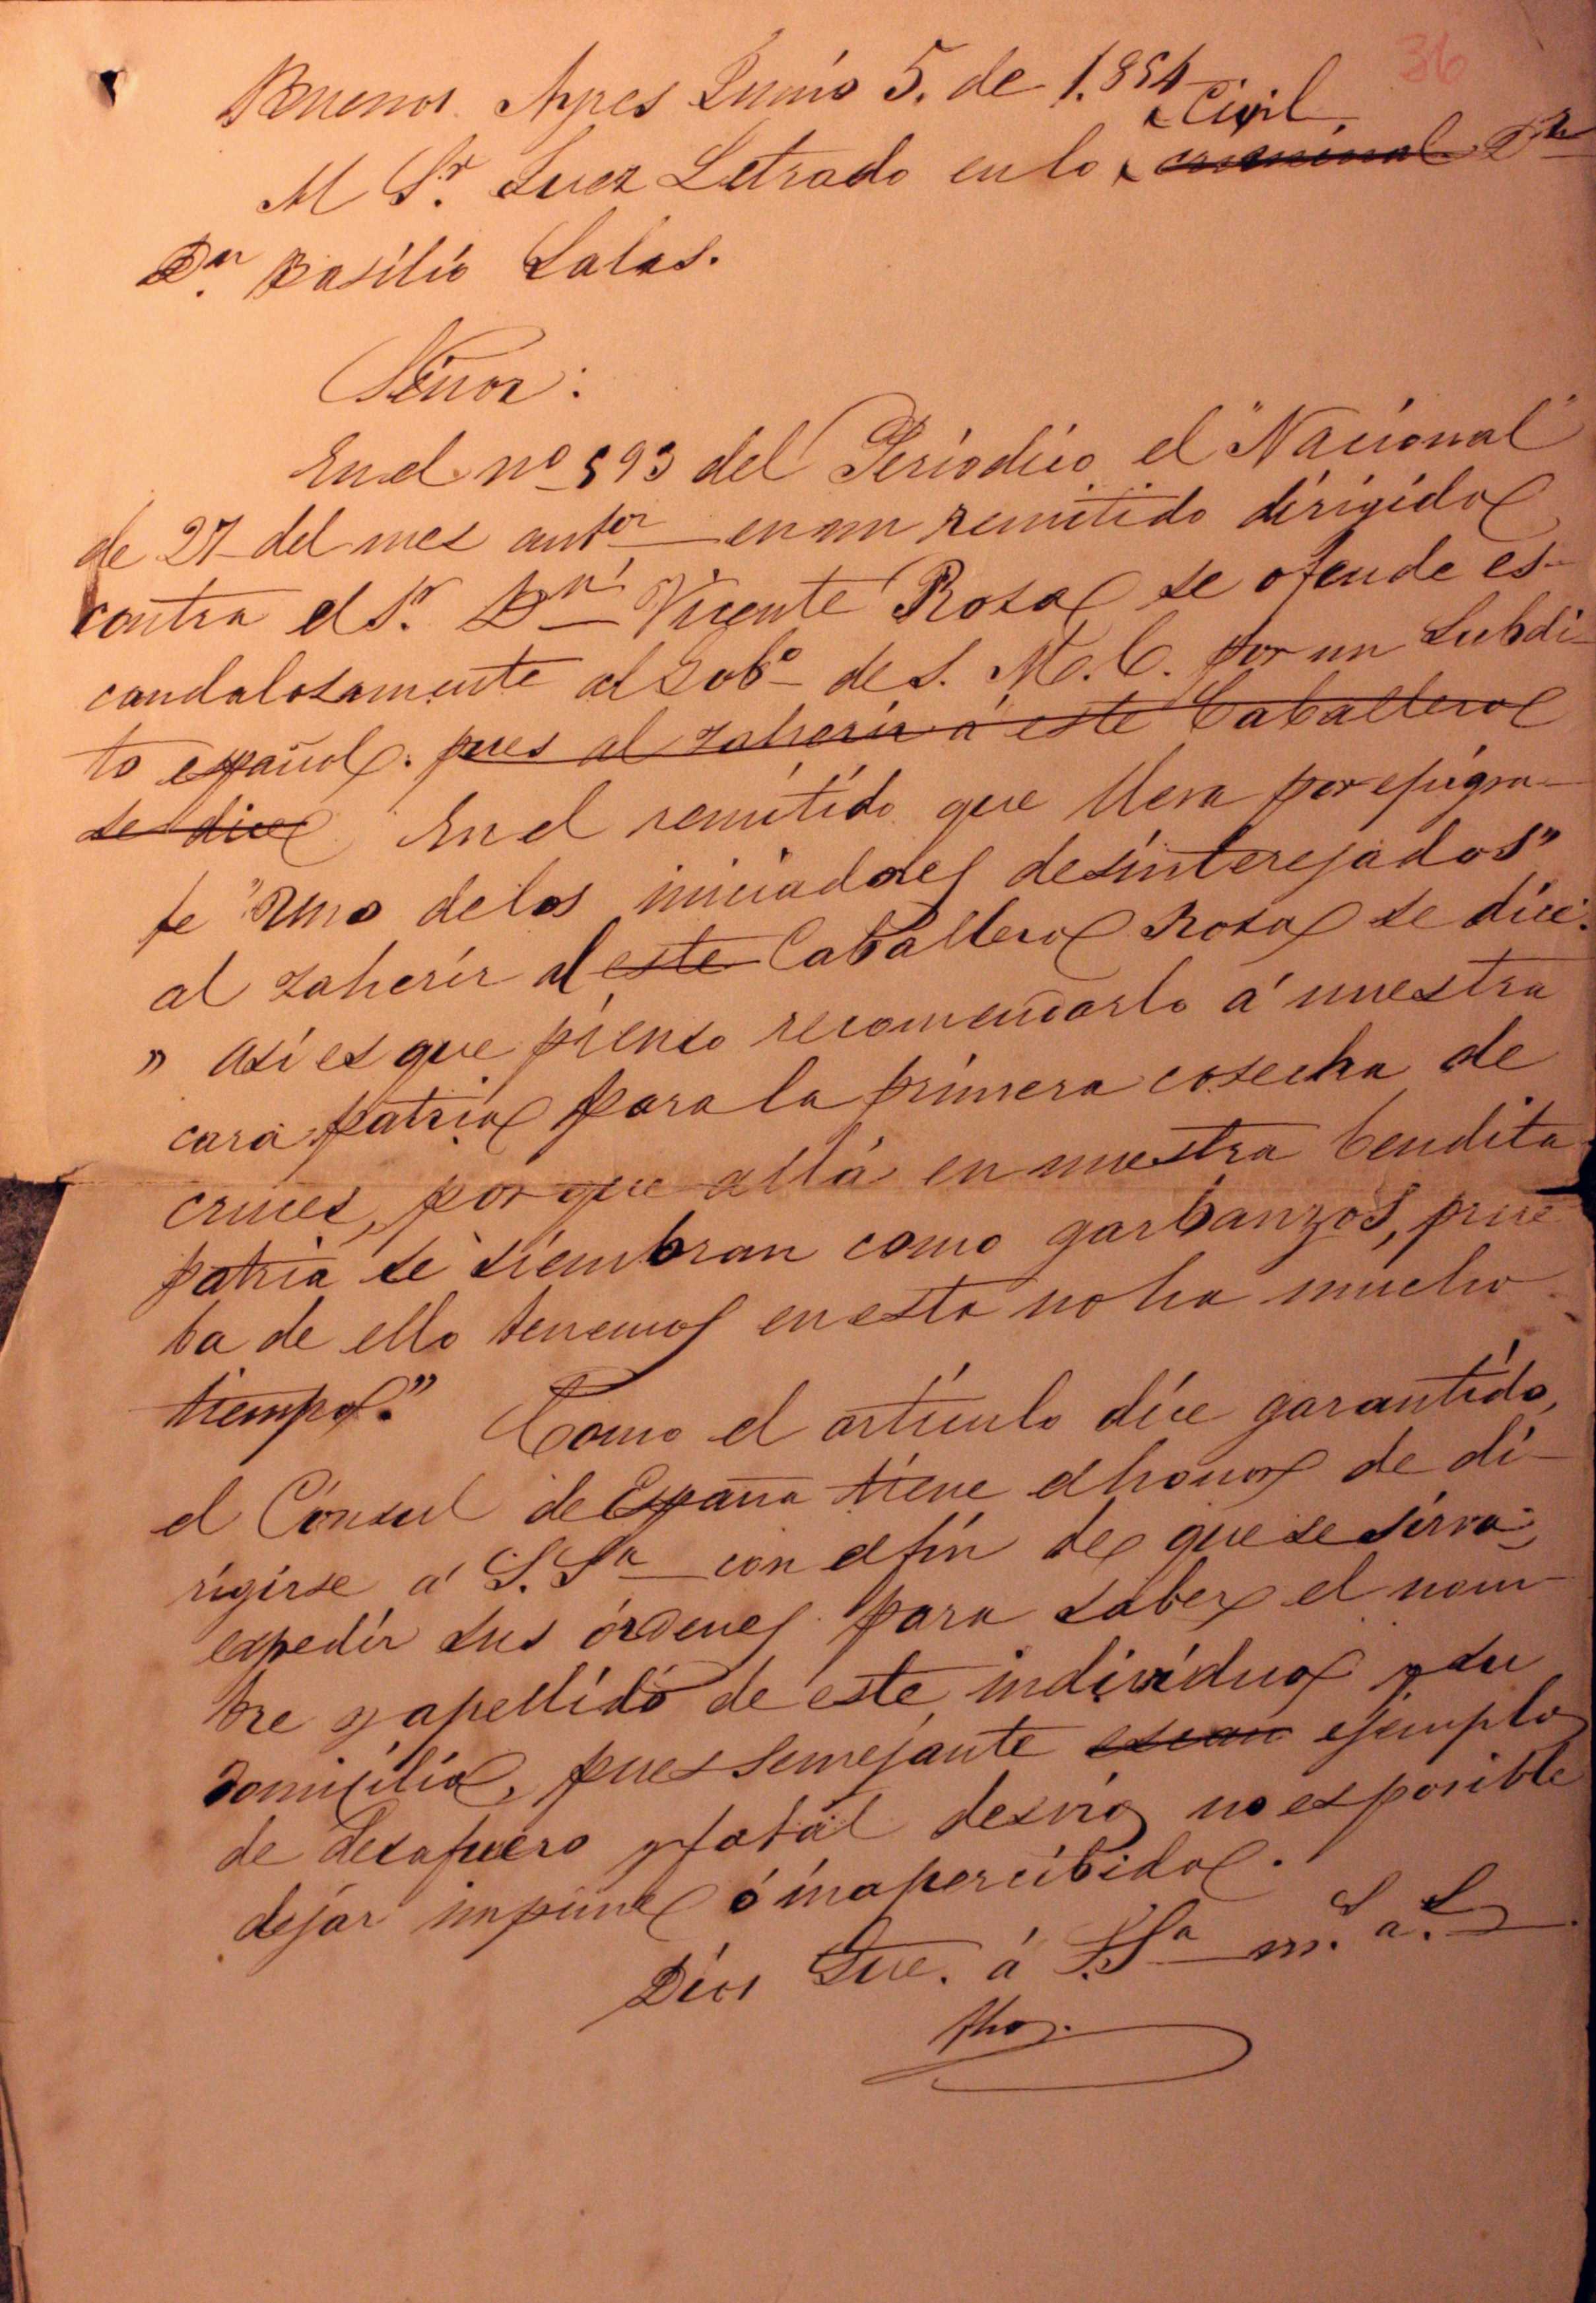 36
Buenos Ayres Junio 5. de 1.854
Civil
Al Sr. Juez Letrado en lo criminal Dr
Dn. Basilio Salas.
Señor:
En el nº 593 del Periodico el "Nacional"
de 27 del mes antor en un remitido dirigido
contra el Sr. Dn Vicente Rosa se ofende es-
candalosamente al Gobº de S. M. C. por un subdi-
to español. pues al zaherir á este Caballero
se dice En el remitido que lleva por epigra-
fe "Uno de los iniciadores desinteresados"
al zaherir al este Caballero Rosa se dice:
" así es que pienso recomendarlo á nuestra
cara patria para la primera cosecha de
cruces, por que allá en nuestra bendita
patria se siembran como garbanzos, prue
ba de ello tenemos en esta no ha mucho
tiempo." Como el artículo dice garantido,
el Cónsul de España tiene el honor de di-
rigirse á S. Sa con el fin de que se sirva
expedir sus órdenes para saber el nom-
bre y apellido de este individuo y su
domicilio, pues semejante ejemplo
de desafuero y fatal desvío no es posible
dejar impune ó inapercibido.
Dios Gue. á S. Sa m. s a. s